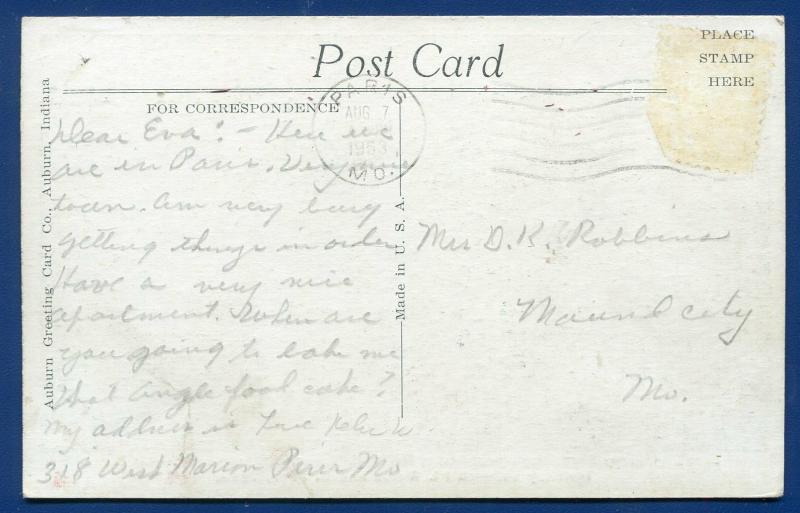 Post Card
PLACE
STAMP
HERE
FOR CORRESPONDENCE
PARIS
AUG 7
1953
MO.
Auburn Greeting Card Co., Auburn, Indiana
Made in U. S. A.
Dear Eva: - Here we
are in Paris. Very nice
town. Am very busy
getting things in order
Have a very nice
apartment. When are
you going to bake me
that angle food cake?
My address is
318 West Marion Paris Mo
Mrs D. K. Robbins
Mound city
Mo.